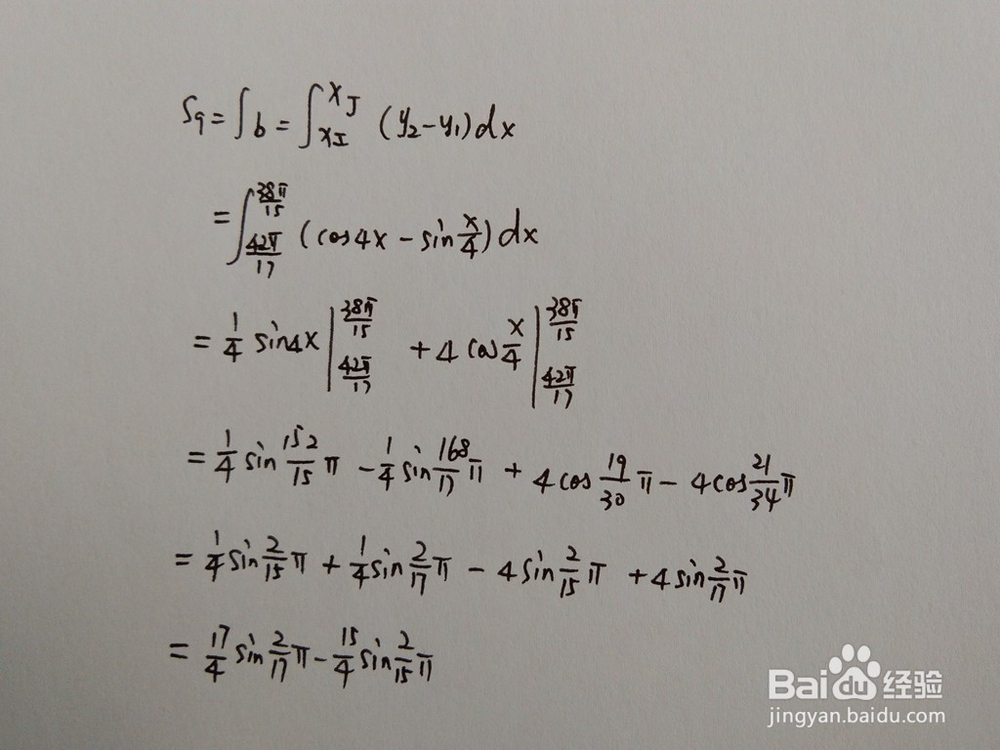 S9=∫b=∫_{xI}^{xJ} (y2-y1)dx
=∫_{42π/17}^{38π/15} (cos4x-sin x/4)dx
= 1/4 sin4x |_{42π/17}^{38π/15} +4cos x/4 |_{42π/17}^{38π/15}
= 1/4 sin 152/15 π - 1/4 sin 168/17 π + 4cos 19/30 π - 4cos 21/34 π
= 1/4 sin 2/15 π + 1/4 sin 2/17 π - 4sin 2/15 π + 4sin 2/17 π
= 17/4 sin 2/17 π - 15/4 sin 2/15 π
Baidu 经验
jingyan.baidu.com